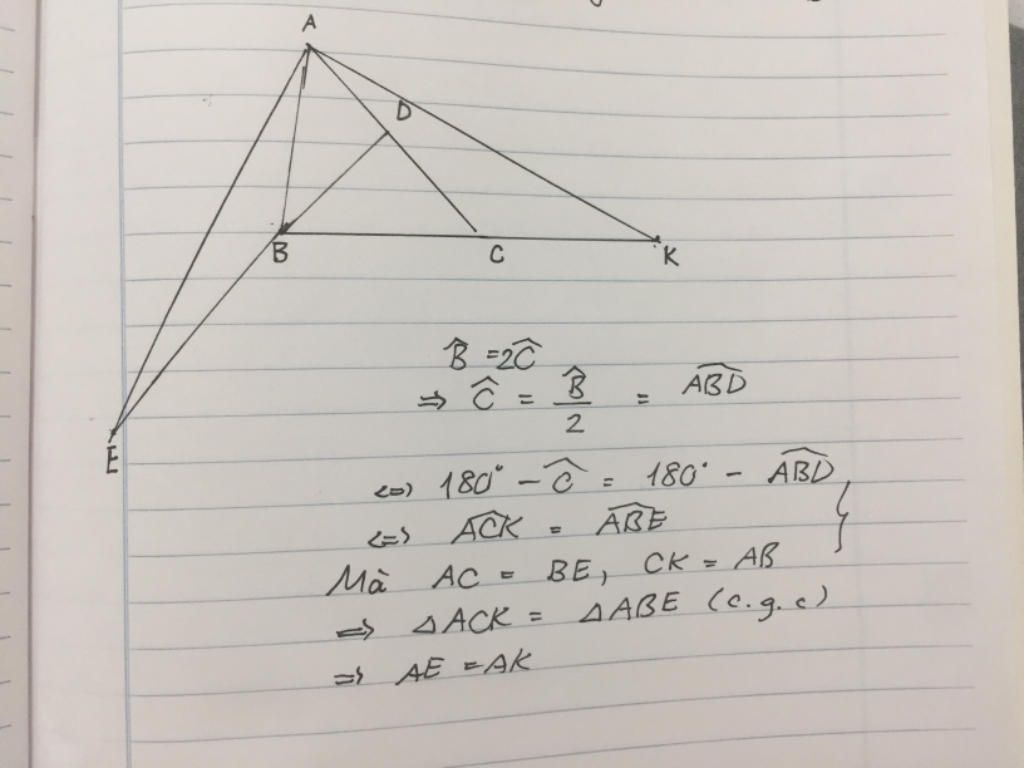 A
D
B
C
K
E
B̂ = 2Ĉ
⇒ Ĉ = B̂/2 = \widehat{ABD}
⇔ 180° - Ĉ = 180° - \widehat{ABD}
⇔ \widehat{ACK} = \widehat{ABE}
Mà AC = BE, CK = AB
⇒ △ACK = △ABE (c.g.c)
⇒ AE = AK